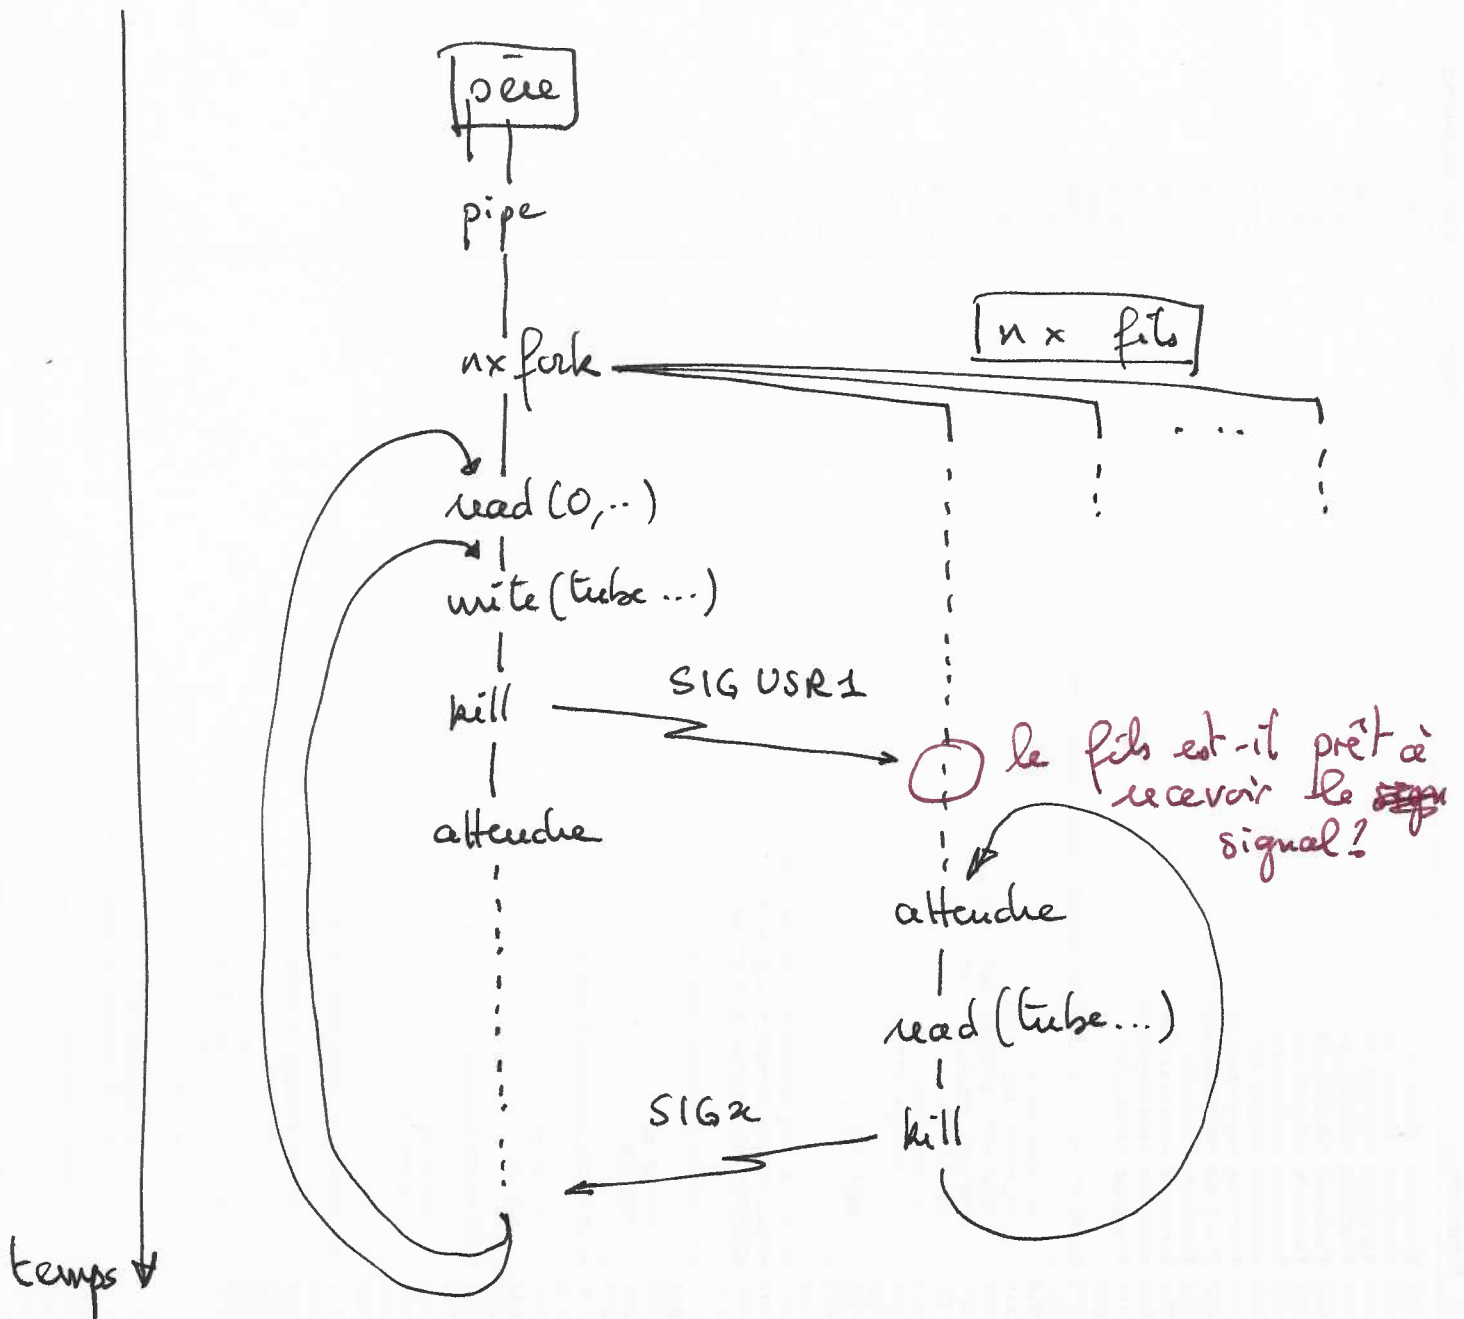 père
pipe
n x fork
n x fils
...
read (0, ..)
write (tube ...)
kill
SIGUSR1
le fils est-il prêt à
recevoir le
signal?
attendre
attendre
read (tube...)
SIGx
kill
temps